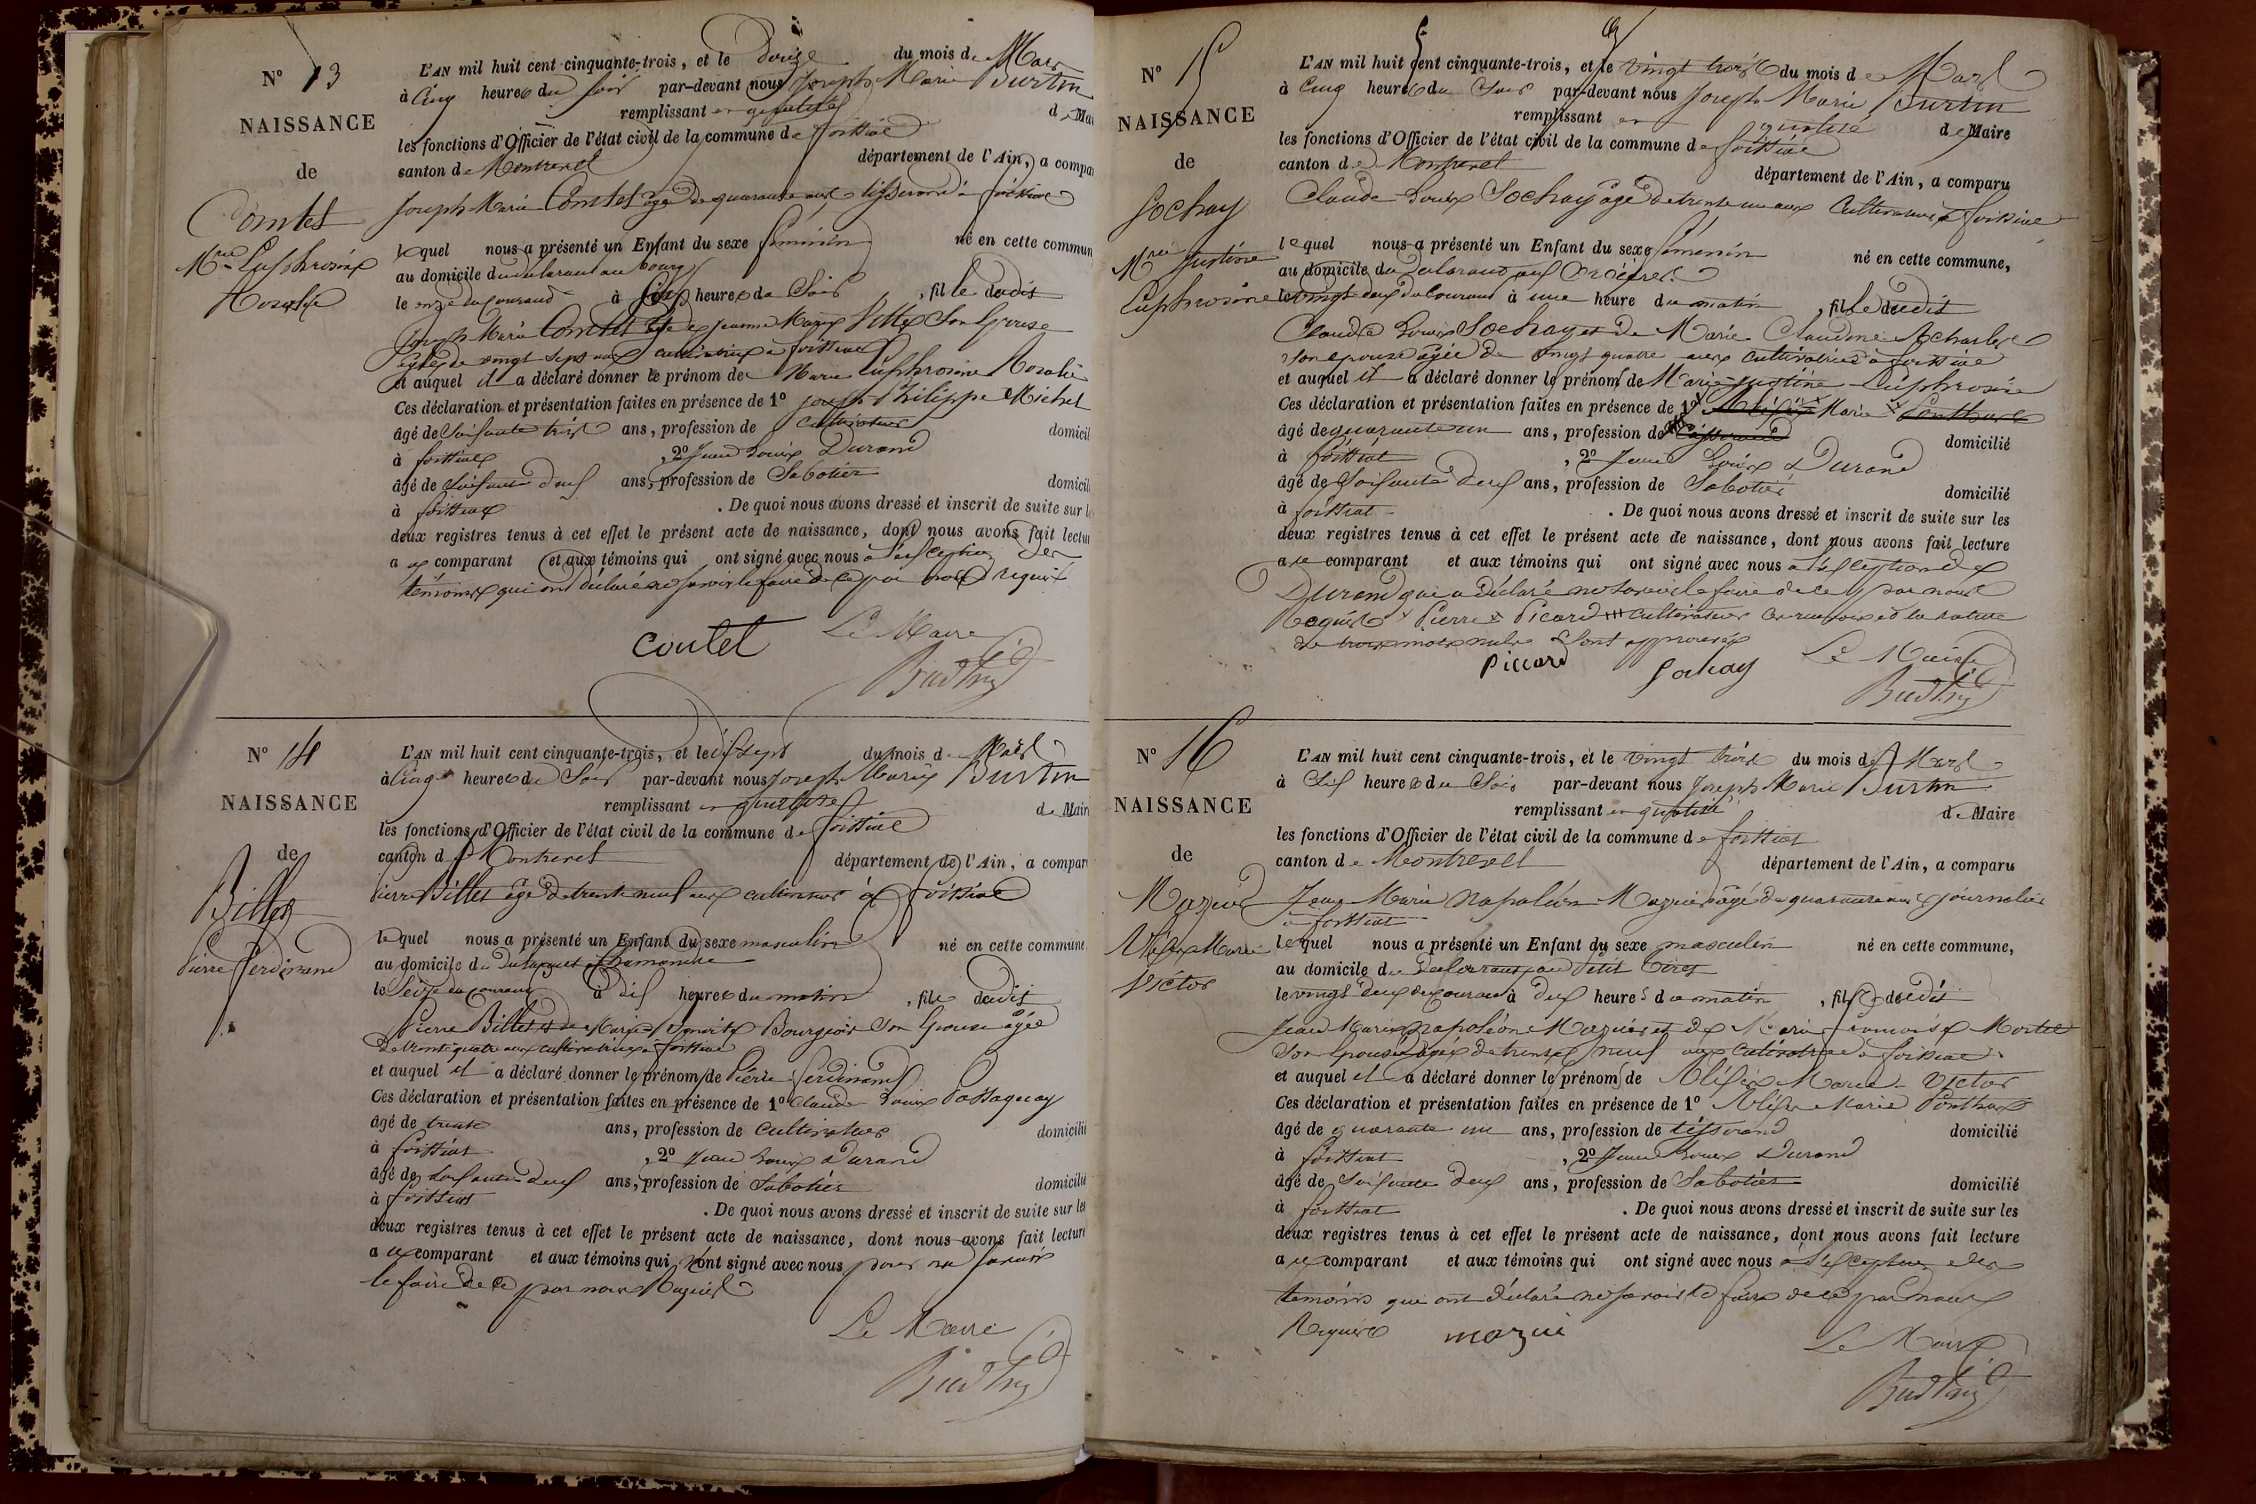 N° 13
NAISSANCE
de
Comtet
Mie Euphrosine
Rosalie
L'AN mil huit cent cinquante-trois, et le douze du mois de Mars
à Cinq heures du Soir par-devant nous Joseph Marie Burtin
remplissant en qualité de Mai
les fonctions d'Officier de l'état civil de la commune de foissiat
canton de Montrevel département de l'Ain, a compa
Joseph Marie Comtet âgé de quarante ans tisserand à foissiat
lequel nous a présenté un Enfant du sexe féminin né en cette commun
au domicile du déclarant au bourg
le onze du courant à six heures du Soir, fille dudit
Joseph Marie Comtet et de Jeanne Marie son épouse
âgée de vingt sept ans cultivatrice à foissiat
et auquel il a déclaré donner le prénom de Marie Euphrosine Rosalie
Ces déclaration et présentation faites en présence de 1° joseph Philippe Michel
âgé de Soixante trois ans, profession de cultivateur domicil
à foissiat, 2° Jean Louis Durand
âgé de Soixante deux ans, profession de Sabotier domicil
à foissiat. De quoi nous avons dressé et inscrit de suite sur l
deux registres tenus à cet effet le présent acte de naissance, dont nous avons fait lectu
a ce comparant et aux témoins qui ont signé avec nous à l'exception des
témoins qui ont déclaré ne savoir le faire de ce par nous requis
coutet
Le Maire
Burtin
N° 14
NAISSANCE
de
Billet
Pierre ferdinand
L'AN mil huit cent cinquante-trois, et le dix sept du mois de Mars
à Cinq heures du Soir par-devant nous Joseph Marie Burtin
remplissant en qualité de Mair
les fonctions d'Officier de l'état civil de la commune de foissiat
canton de Montrevel département de l'Ain, a compar
Pierre Billet âgé de trente neuf ans cultivateur à foissiat
lequel nous a présenté un Enfant du sexe masculin né en cette commune
au domicile du déclarant
le Seize du courant à dix heures du matin, fils dudit
Pierre Billet et de Marie Bourgeois Son épouse âgée
de trente quatre ans cultivatrice à foissiat
et auquel il a déclaré donner le prénom de Pierre ferdinand
Ces déclaration et présentation faites en présence de 1° Claude Louis Passaquay
âgé de trente ans, profession de cultivateur domicilié
à foissiat, 2° Jean Louis Durand
âgé de soixante deux ans, profession de Sabotier domicilié
à foissiat. De quoi nous avons dressé et inscrit de suite sur les
deux registres tenus à cet effet le présent acte de naissance, dont nous avons fait lecture
a ce comparant et aux témoins qui n'ont signé avec nous pour ne savoir
le faire de ce par nous Requis
Le Maire
Burtin
N° 15
NAISSANCE
de
Sochay
Mie Justine
Euphrosine
L'AN mil huit cent cinquante-trois, et le vingt trois du mois de Mars
à Cinq heures du Soir par-devant nous Joseph Marie Burtin
remplissant en qualité de Maire
les fonctions d'Officier de l'état civil de la commune de foissiat
canton de Montrevel département de l'Ain, a comparu
Claude Louis Sochay âgé de trente un ans Cultivateur à foissiat
lequel nous a présenté un Enfant du sexe féminin né en cette commune,
au domicile du déclarant
le vingt deux du Courant à une heure du matin, fille dudit
Claude Louis Sochay et de Marie Claudine
son épouse âgée de vingt quatre ans cultivatrice à foissiat
et auquel il a déclaré donner le prénom de Marie Justine Euphrosine
Ces déclaration et présentation faites en présence de 1° Aléxis Marie Ponthus
âgé de quarante un ans, profession de tisserand domicilié
à foissiat, 2° Jean Louis Durand
âgé de Soixante deux ans, profession de Sabotier domicilié
à foissiat. De quoi nous avons dressé et inscrit de suite sur les
deux registres tenus à cet effet le présent acte de naissance, dont nous avons fait lecture
a ce comparant et aux témoins qui ont signé avec nous à l'exception de
Durand qui a déclaré ne savoir le faire de ce par nous
Requis x Pierre x Picard +++ cultivateur ce renvoi et la rature
de trois mots nuls sont approuvés
piccard
Sochay
Le Maire
Burtin
N° 16
NAISSANCE
de
Mazuir
Aléxis Marie
Victor
L'AN mil huit cent cinquante-trois, et le vingt trois du mois de Mars
à Six heures du Soir par-devant nous Joseph Marie Burtin
remplissant en qualité de Maire
les fonctions d'Officier de l'état civil de la commune de foissiat
canton de Montrevel département de l'Ain, a comparu
Jean Marie Napoléon Mazuir âgé de quarante ans journalier
à foissiat
lequel nous a présenté un Enfant du sexe masculin né en cette commune,
au domicile du déclarant au Petit
le vingt deux du courant à deux heures du matin, fils dudit
Jean Marie Napoléon Mazuir et de Marie françoise
Son épouse âgée de trente neuf ans cultivatrice à foissiat
et auquel il a déclaré donner le prénom de Aléxis Marie Victor
Ces déclaration et présentation faites en présence de 1° Aléxis Marie Ponthus
âgé de quarante un ans, profession de tisserand domicilié
à foissiat, 2° Jean Louis Durand
âgé de Soixante deux ans, profession de Sabotier domicilié
à foissiat. De quoi nous avons dressé et inscrit de suite sur les
deux registres tenus à cet effet le présent acte de naissance, dont nous avons fait lecture
a ce comparant et aux témoins qui ont signé avec nous à l'exception des
témoins qui ont déclaré ne savoir le faire de ce par nous
Requis
mazui
Le Maire
Burtin